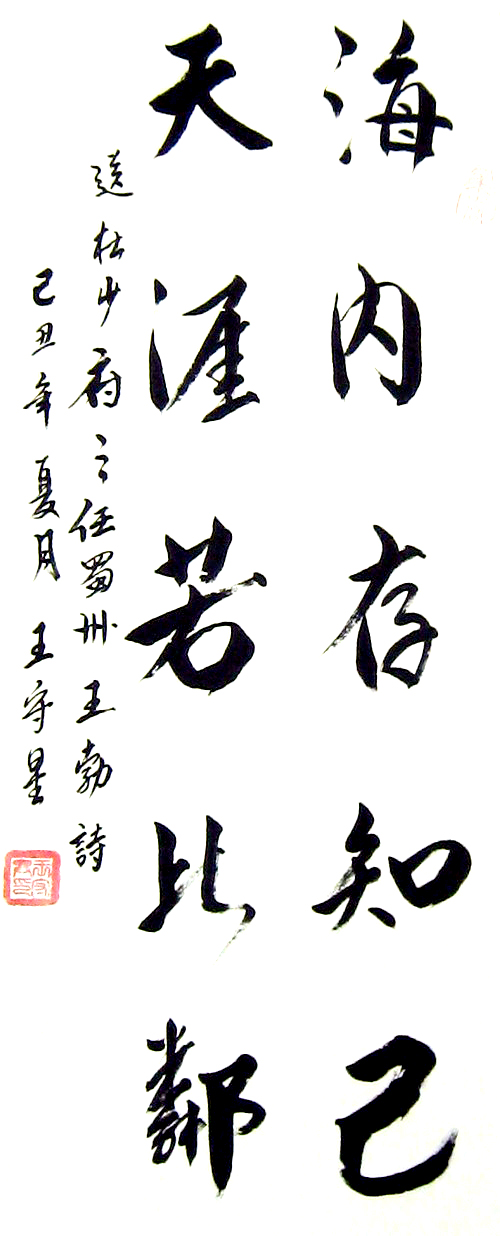 海内存知己
天涯若比鄰
送杜少府之任蜀州 王勃詩
己丑年夏月 王守星